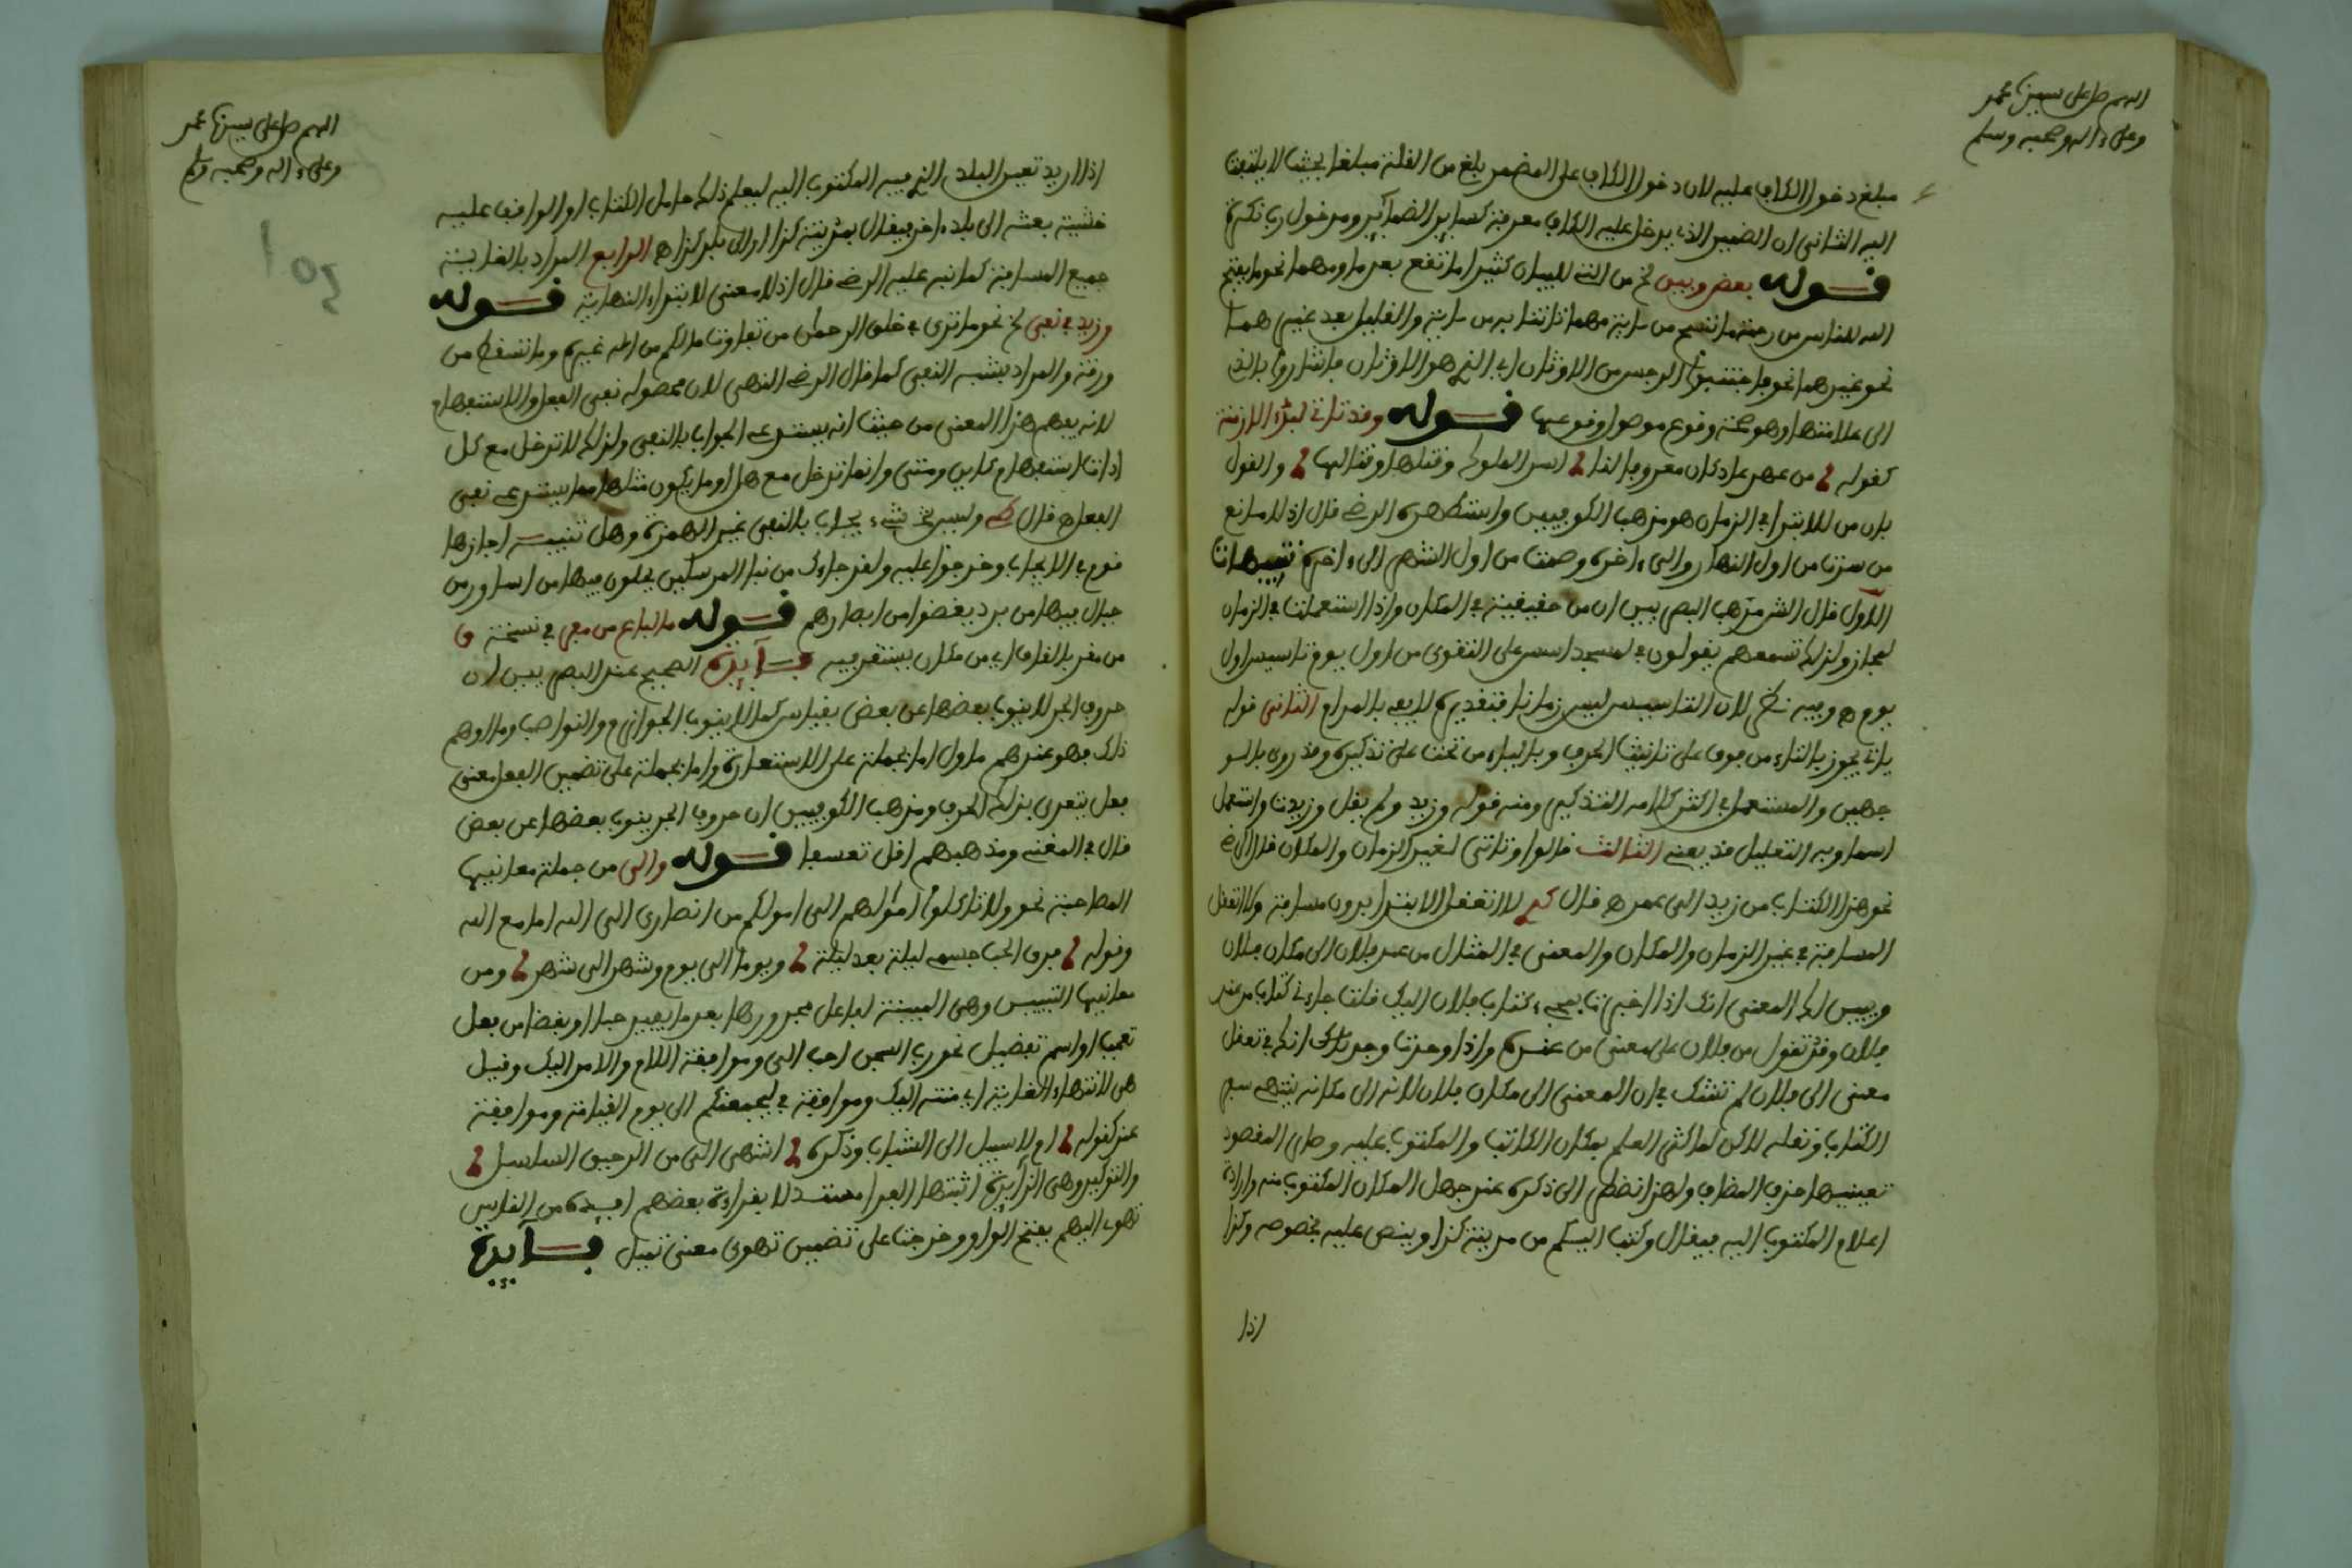 اللهم صل على سيدنا محمد
وعلى ءاله وصحبه وسلم
مبلغ دخول الكاف عليه لان دخول الكاف على المضمر بلغ من القلة مبلغا بحيث لا يلتفت
اليه الثاني ان الضمير الذي يدخل عليه الكاف معرفة كساير الضمآئر ومدخول رب نكرة
قوله بعض وبين لخ من التي للبيان كثيرا ما تقع بعد ما ومهما نحو ما يفتح
الله للناس من رحمة ما ننسخ من ءاية مهما تاتنا به من ءاية والقليل بعد غيرهما
نحو فاجتنبوا الرجس من الاوثان اي الذي هو الاوثان فاشاروا بالذي
الى علامتها وهو صحة وقوع موصول موقعها قوله وقد تاتي لبدء الازمنة
كقوله من عهد عاد كان معروفا لنا اسر الملوك وقتلها وقتالها والقول
بان من للابتداء في الزمان هو مذهب الكوفيين واستظهره الرضي قال اذ لا مانع
من سرت من اول النهار والى ءاخره وصمت من اول الشهر الى ءاخره تنبيهات
الاول قال الش مذهب البصريين ان من حقيقية في المكان واذا استعملت في الزمان
فمجاز ولذلك تسمعهم يقولون في لمسجد اسس على التقوى من اول يوم تاسيس اول
يوم ه وفيه نظر لان التاسيس ليس زمانا فتقديره لا يفي بالمرام الثاني قوله
ياتي يجوز بالتاء من فوق على تانيث الحرف وبالياء من تحت على تذكيره وقد روى بالو
جهين والمستعمل في اكثر كلامه التذكير ومنه قوله وزيد ولم يقل وزيدت واستعمل
اسما وبه التعليل قد يعنى الثالث قالوا وتاتي لغير الزمان والمكان قال الرضي
نحو هذا الكتاب من زيد الى عمرو قال لا تعقل الابتداء بدون مسافة ولا تعقل
المسافة في غير الزمان والمكان والمعنى في المثال من عند فلان الى مكان فلان
وبين لك المعنى انك اذا اخبرت بمجيء كتاب فلان اليك قلت جاءني كتاب من عند
فلان وقد تقول من فلان على معنى من عنده واذا وجدت وجدانك انك في تعقل
معنى الى فلان لم تشك في ان المعنى الى مكان فلان لانه الى مكانه ينتهي سير
الكتاب ونقله لاكن لما كثر العلم بمكان الكاتب والمكتوب عليه وصار المقصود
تعيينها حذف المضاف ولهذا تضطر الى ذكره عند جهل المكان المكتوب منه وارادة
اعلام المكتوب اليه فيقال وكتب اليكم من مدينة كذا وينص عليه بخصوصه وكذا
اذا
اللهم صل على سيدنا محمد
وعلى ءاله وصحبه وسلم
اذا اريد تعيين البلد الذي فيه المكتوب اليه ليعلم ذلك حامل الكتاب او الواقف عليه
خشية بعثه الى بلد ءاخر فيقال بمدينة كذا او الى بلد كذا ه الرابع المراد بالغاية
جميع المسافة كما نبه عليه الرضي قال اذ لا معنى لابتداء النهاية قوله
وزيد في نفي لخ نحو ما ترى في خلق الرحمان من تفاوت ما لكم من اله غيره وما تسقط من
ورقة والمراد بشبه النفي كما قال الرضي النهي لان محصوله نفي الفعل والاستفهام
لانه يفهم هذا المعنى من حيث انه يستدعي الجواب بالنفي ولذلك لا تدخل مع كل
ادات استفهام كاين ومتى وانما تدخل مع هل او ما يكون مثلها مما يستدعي نفي
الفعل ه قال وليس شيء يجاب بالنفي غير الهمزة وهل تنبيه اجازها
قوم في الايجاب وخرجوا عليه ولقد جاءك من نبا المرسلين يحلون فيها من اساور من
جبال فيها من برد يغضوا من ابصارهم قوله ما لباغ من مفر في نسخة
من مفر بالقاف اي من مكان يستقر فيه فآيدة الصحيح عند البصريين ان
حروف الجر لا ينوب بعضها عن بعض بقياس كما لا ينوب الجوازم والنواصب وما اوهم
ذلك فهو عندهم ماول اما بحمله على الاستعارة واما بحمله على تضمين الفعل معنى
فعل يتعدى بذلك الحرف ومذهب الكوفيين ان حروف الجر ينوب بعضها عن بعض
قال في المغني ومذهبهم اقل تعسفا قوله والى من جملة معانيها
المصاحبة نحو ولا تاكلوا اموالهم الى اموالكم من انصاري الى الله اي مع الله
وقوله برى الحب جسمي ليلة بعد ليلة ويوما الى يوم وشهرا الى شهر ومن
معانيها التبيين وهي المبينة لفاعل مجرورها بعد ما يفيد حبا او بغضا من فعل
تعجب او اسم تفضيل نحو رب السجن احب الي وموافقة اللام والامر اليك وقيل
هي لانتهاء الغاية اي منته اليك وموافقة في ليجمعنكم الى يوم القيامة وموافقة
عند كقوله ام لا سبيل الى الشباب وذكره اشهى الي من الرحيق السلسل
والتوكيد وهي الزآيدة اثبتها الفراء مستدلا بقراءة بعضهم افيدة من الناس
تهوى اليهم بفتح الواو وخرجت على تضمين تهوى معنى تميل فآيدة